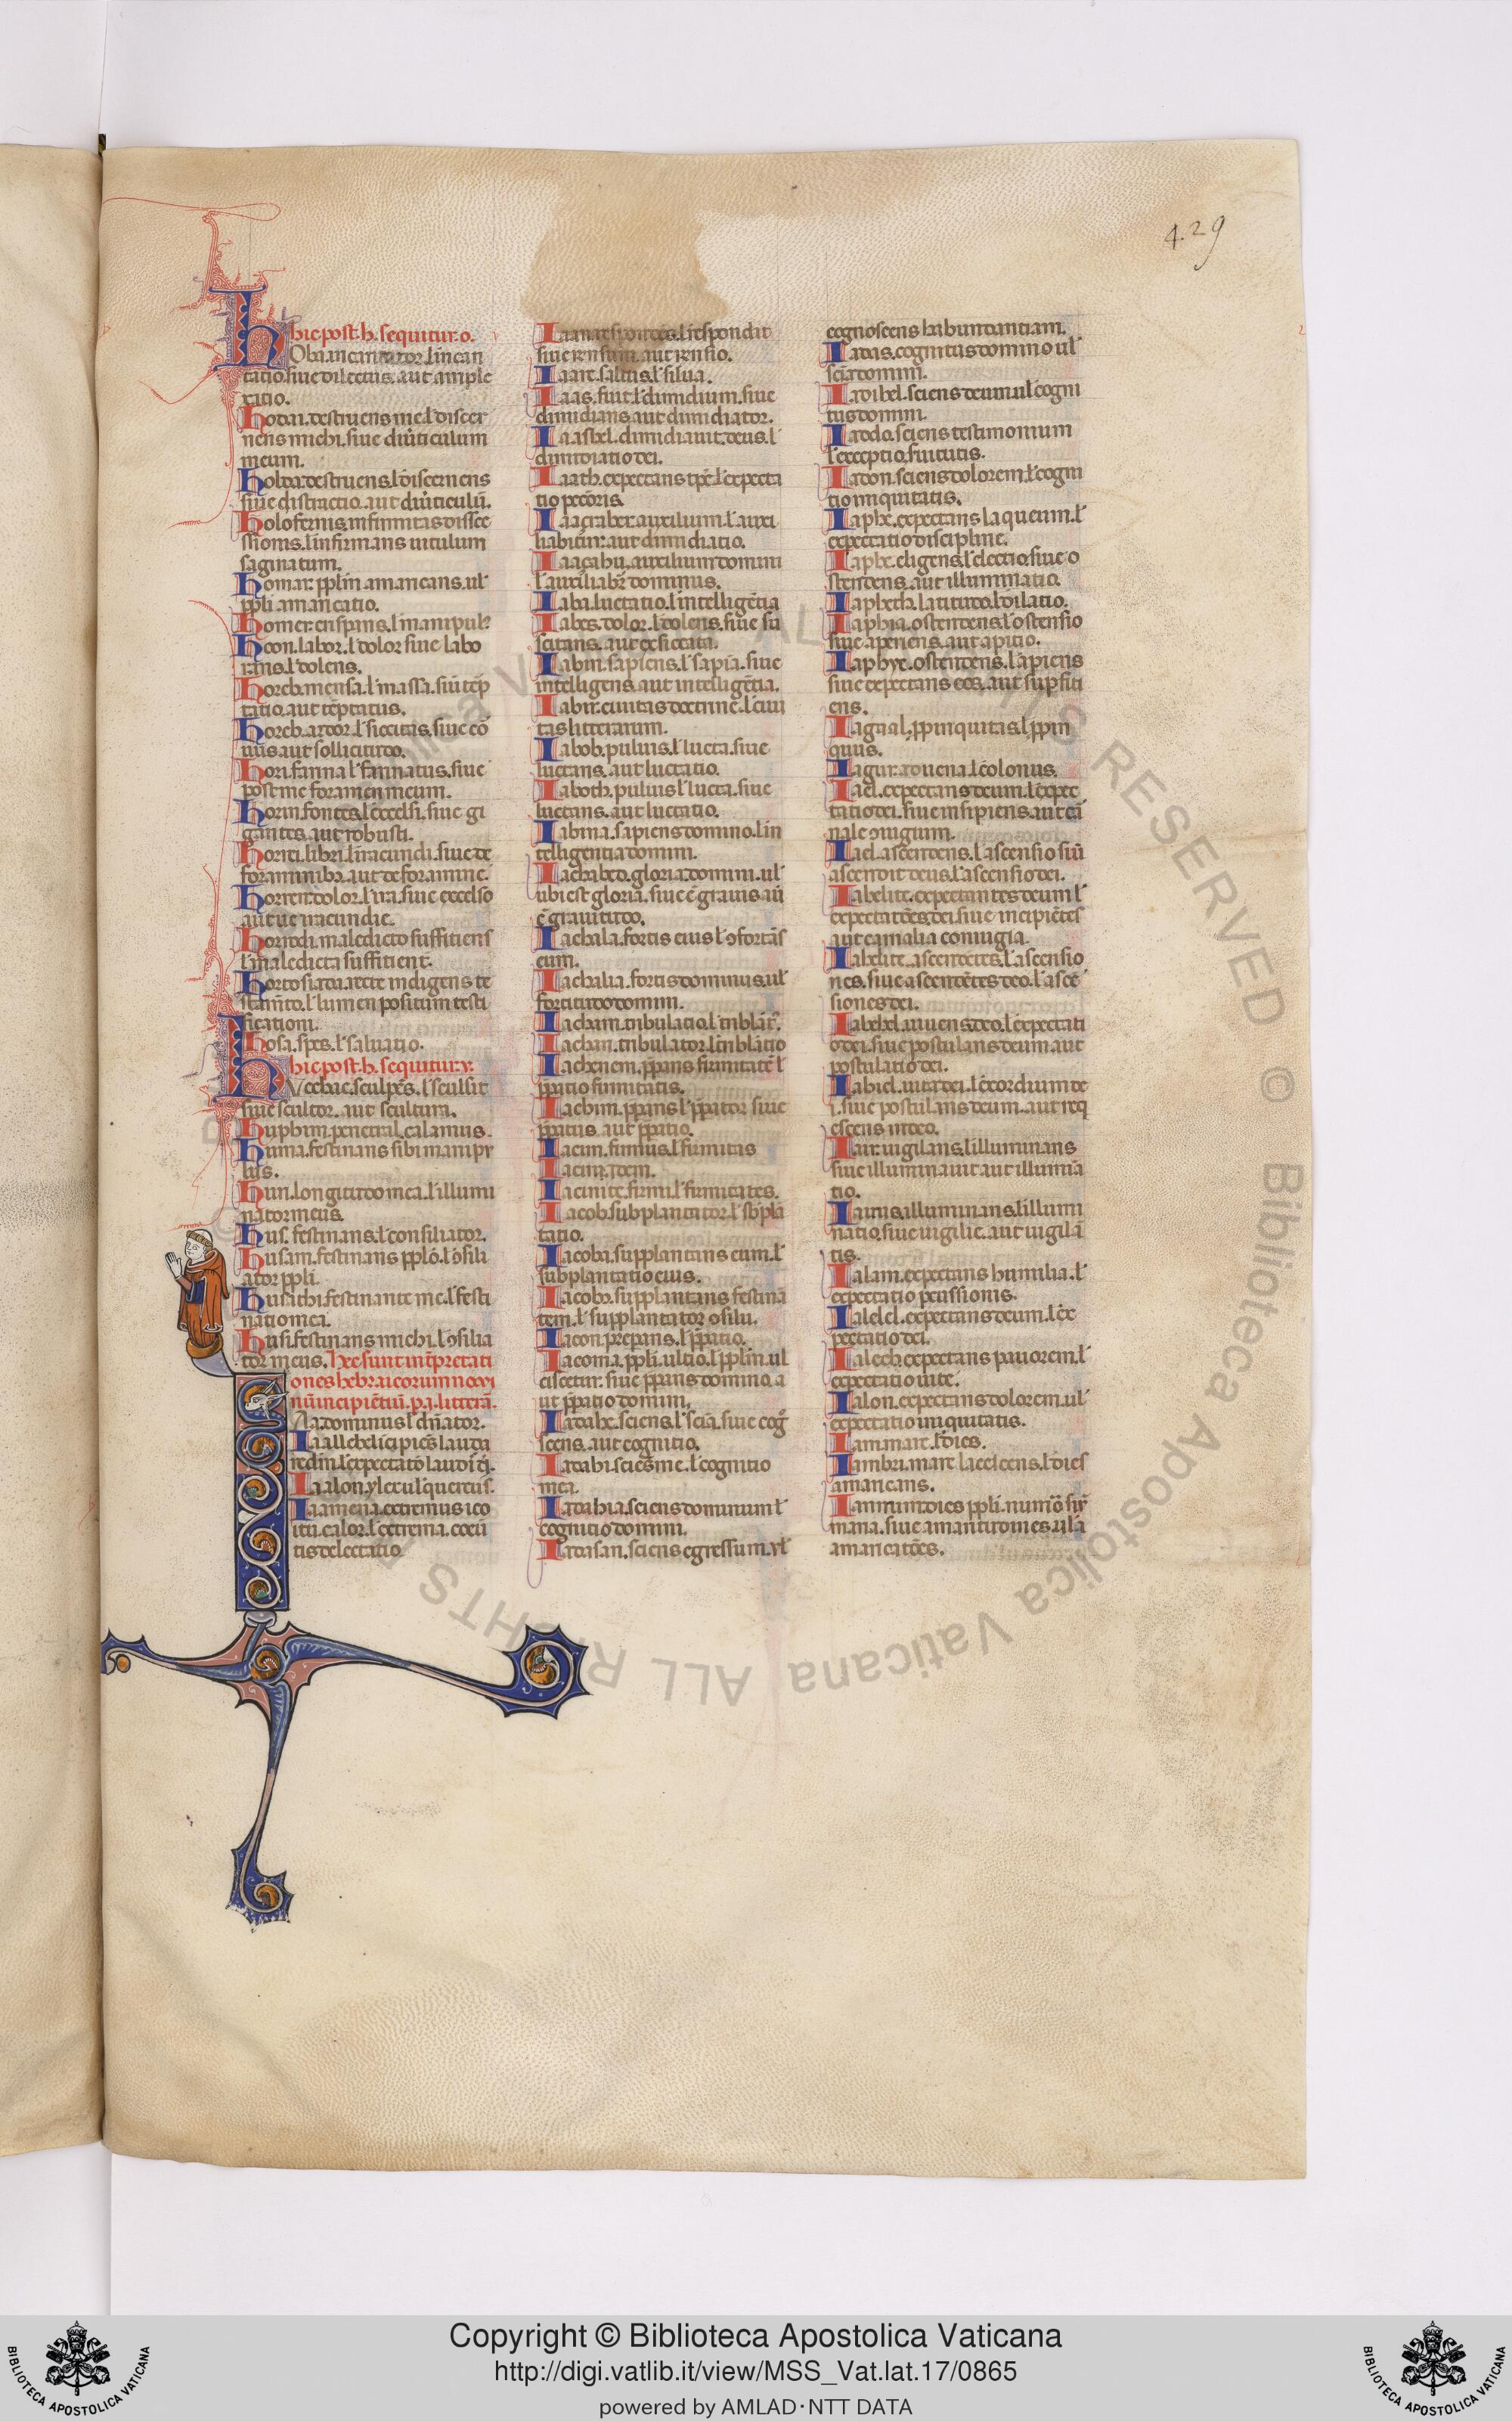 4.29
hic post .h. sequitur .o.
Oba incantator. l' incan
tatio. siue dilectus. autample
xatio.
Hodai. destruens me. l' discer
nens michi. siue diu'ticulum
meum.
Holda destruens. l' discernens
siue distractio. aut diu'ticulū.
Holofernis. infirmitas disce
ssionis. l' infirmans uitulum
saginatum.
Homar. ppl'm amaricans. ul'
ppl'i amaricatio.
Homer. crispans. l' manipul'
Hoon. labor. l' dolor siue labo
rans. l' dolens.
Horeb. mensa. l' massa. siu' tēp
tatio. aut tēptatus.
Horeb. ardor. l' siccitas. siue co
uus aut sollicitudo.
Hori. farina l' farinatus. siue
post me foramen meum.
Horim. fontes. l' excelsi. siue gi
gantes. aut robusti.
Horrei. libri. l' iracundi. siue de
foraminibз. aut de foramine.
Horren. dolor. l' ira. siue excelso
aut ue iracundie.
Horrodi. maledicto suffitiens
l' maledicta suffitient.
stam̄to. l' lumen positum testi
ficationi.
Hosa. spes. l' saluatio.
hic post .h. sequitur .v.
Vcebac. sculpēs. l' sculsit
siue scultor. aut scultura.
Huphim. penetral. calamus.
Huma. festinans sibi manipu
lus.
Huri. longitudo mea. l' illumi
nator meus.
Hus. festinans. l' consiliator.
Husam. festinans ppl'o. l' ɔsili
ator ppl'i.
Husathi. festinante me. l' festi
natio mea.
Husi. festinans michi. l' ɔsilia
tor meus. Hee sunt int̄pretati
ones hebraicorum noxi
num incipiētiū. p. i. litterā.
Aa. dominus. l' dn̄ator.
Iaallehel. icipiēs lauda
re dm̄. l' expectatō laudi' q'.
Iaalon. ylex ul' quercus.
Iaamena. extremus ico
itu. calor. l' extrema. coctū
tis delectatio.
siue iensum. aut iensio.
Iaar. saltus. l' silua.
Iaas. fuit. l' dimidium. siue
dimidians. aut dimidiator.
Iaasiel. dimidiauit deus. l'
dimidiatio dei.
Iaath. expectans tpr̄. l' expecta
tio pectoris.
Iaazaber. auxilium. l' auxi
liabitur. aut dimidiatio.
Iaazahu. auxilium domini
l' auxiliabr̄ dominus.
Iaba. luctatio. l' intelligētia
Iabes. dolor. l' dolens. siue su
scitans. aut exsiccata.
Iabin. sapiens. l' sapīa. siue
intelligens. aut intelligētia.
Iabir. ciuitas doctrine. l' ciui
tas litterarum.
Iabob. puluis. l' lucta. siue
luctans. aut luctatio.
Iaboth. puluis l' lucta. siue
luctans. aut luctatio.
Iabina. sapiens domino. l' in
telligentia domini.
Iachabed. gloria domini. ul'
ubi est gloria. siue ē grauis au'
ē grauitudo.
Iachala. fortis eius l' ɔfortās
eum.
Iachalia. fortis dominus. ul'
fortitudo domini.
Iacham. tribulatio. l' tribl'at'.
Iachan. tribulator. l' tribl'atio
Iachenem. p̄parans firmitatē l'
p̄patio firmitatis.
Iachim. p̄parans l' p̄parator siue
p̄patus. aut p̄patio.
Iacim. firmus. l' firmitas
Iacim. idem.
Iacinite. firmi. l' firmitates.
Iacob. subplantator. l' sb'pla
tatio.
Iacoba. supplantans eum. l'
subplantatio eius.
Iacobo. supplantans festina
tem. l' supplantator ɔsilu.
Iacon. prepans. l' p̄patio.
Iacoma. ppl'i. ultio. l' ppl'm. ul
ciscetur. siue p̄parans domino. a
ut p̄patio domini.
Iadahe. sciens. l' scīa. siue cog
scens. aut cognitio.
Iadahi. sciēs me. l' cognitio
mea.
Iadahia. sciens dominum l'
cognitio domini.
Iadasan. sciens egressum. ul'
cognoscens habundantiam.
Iadas. cognitus domino ul'
scīa domini.
Iadihel. sciens deum. ul' cogni
tus domini.
Iaddo. sciens testimonium
l' exceptio. siuitutis.
Iadon. sciens dolorem. l' cogni
tio iniquitatis.
Iaphe. expectans laqueum. l'
expectatio discipline.
Iaphe. eligens. l' electio. siue o
stendens. aut illuminatio.
Iapheth. latitudo. l' dilatio.
Iaphia. ostendens. l' ostensio
siue aperiens. aut ap̄itio.
Iaphye. ostendens. l' apiens
siue expectans eos. aut sup̄fiti
ens.
Iagnal. p̄pinquitas. l' p̄pin
quus.
Iagur. aduena. l' colonus.
Iael. expectans deum. l' expec
tatio dei. siue insipiens. aut cā
nale ɔiugium.
Iael. ascendens. l' ascensio siū
ascendit deus. l' ascensio dei.
Iahelite. expectantes deum l'
expectatōes. dei. siue incipiētes
aut carnalia coniugia.
Iahelite. ascendentes. l' ascensio
nes. siue ascendētes deo. l' ascē
siones dei.
Iahehel. uiuens deo. l' expectati
o dei. siue postulans deum aut
postulatio dei.
Iahiel. uita dei. l' exordium de
i. siue postulans deum. aut req
escens in deo.
Iair. uigilans. l' illuminans
siue illuminauit aut illumia
tio.
Iairus. alluminans. l' illumi
natio. siue uigilie. aut uigilā
tis.
Ialam. expectans humilia. l'
expectatio p̄cussionis.
Ialelel. expectans deum. l' ex
pectatio dei.
Ialech. expectans pauorem. l'
expectatio uite.
Ialon. expectans dolorem. ul'
expectatio iniquitatis.
Iam. mare. l' dies.
Iambri. mare lacescens. l' dies
amaricans.
mana. siue amaritudines. ul' a
amaricatōes.
Copyright © Biblioteca Apostolica Vaticana
http://digi.vatlib.it/view/MSS_Vat.lat.17/0865
powered by AMLAD·NTT DATA
BIBLIOTECA APOSTOLICA VATICANA
BIBLIOTECA APOSTOLICA VATICANA
© Biblioteca Apostolica Vaticana ALL RIGHTS RESERVED